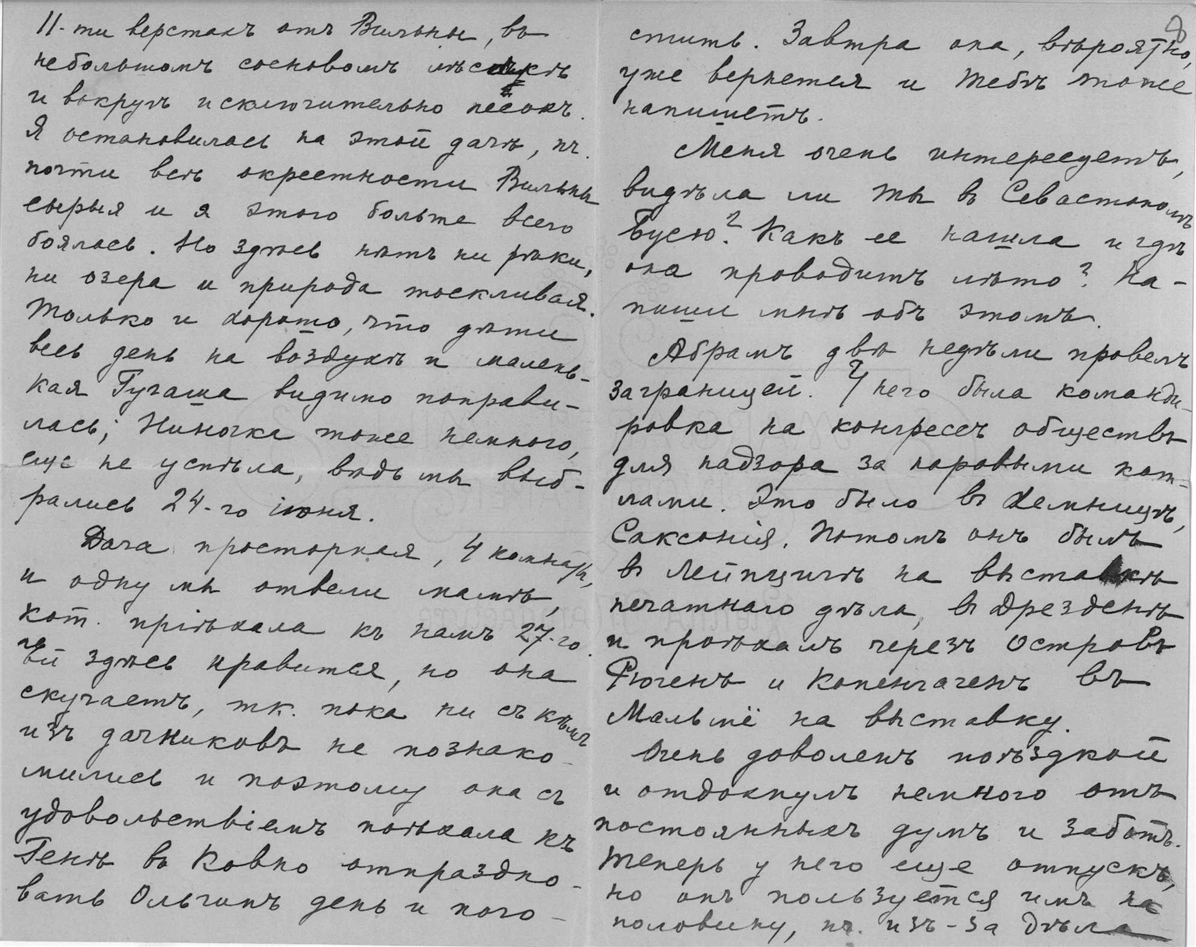 11-ти верстахъ отъ Вильны, въ
небольшомъ сосновомъ лѣсикѣ
и вокругъ исключительно песокъ.
Я остановилась на этой дачѣ, пч.
почти всѣ окрестности Вильны
сырыя и я этого больше всего
боялась. Но здѣсь нѣтъ ни рѣки,
ни озера и природа тоскливая.
Только и хорошо, что дѣти
весь день на воздухѣ и малень-
кая Гугаша видимо поправи-
лась; Ниночка тоже немного,
еще не успѣла, вѣдь мы выб-
рались 24-го іюня.
Дача просторная, 4 комнаты,
и одну мы отвели мамѣ,
кот. пріѣхала къ намъ 27-го.
Ей здѣсь нравится, но она
скучаетъ, тк. пока ни съ кѣмъ
изъ дачниковъ не познако-
мились и поэтому она съ
удовольствіемъ поѣхала къ
Генѣ въ Ковно отпраздно-
вать Ольгинъ день и пого-
8
стить. Завтра она, вѣроятно,
уже вернется и тебѣ тоже
напишетъ.
Меня очень интересуетъ,
видѣла ли ты в Севастополѣ
Бусю? Какъ ее нашла и гдѣ
она проводитъ лѣто? На-
пиши мнѣ объ этомъ.
Абрамъ двѣ недѣли провелъ
заграницей. У него была команди-
ровка на конгрессъ обществъ
для надзора за паровыми кот-
лами. Это было в Хемницѣ,
Саксонія. Потомъ онъ былъ
в Лейпцигѣ на выставкѣ
печатнаго дѣла, в Дрезденѣ
и проѣхалъ черезъ островъ
Рюгенъ и Копенгагенъ въ
Мальмё на выставку.
Очень доволенъ поѣздкой
и отдохнулъ немного отъ
постоянныхъ думъ и заботъ.
Теперь у него еще отпускъ,
но онъ пользуется имъ на
половину, пч. изъ-за дѣла